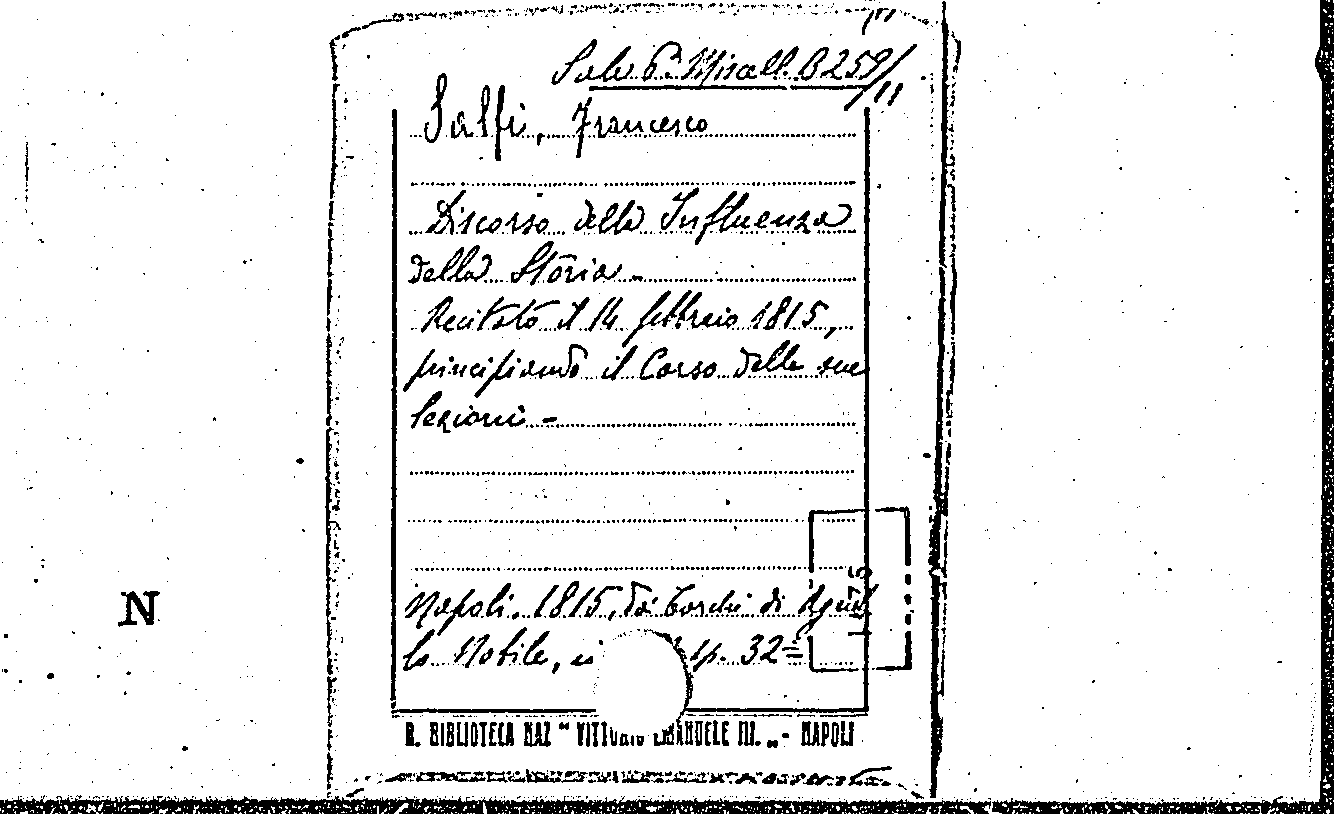 Sala 6ª. Miscell. B 259/11
Salfi, Francesco
Discorso della Influenza
della Storia -
Recitato il 14 febbraio 1815,
principiando il Corso delle sue
lezioni -
Napoli. 1815, da' Torchi di Agnel
lo Nobile, in p. 32=
1675
N
R. BIBLIOTECA NAZ " VITTORIO EMANUELE III. „ - NAPOLI